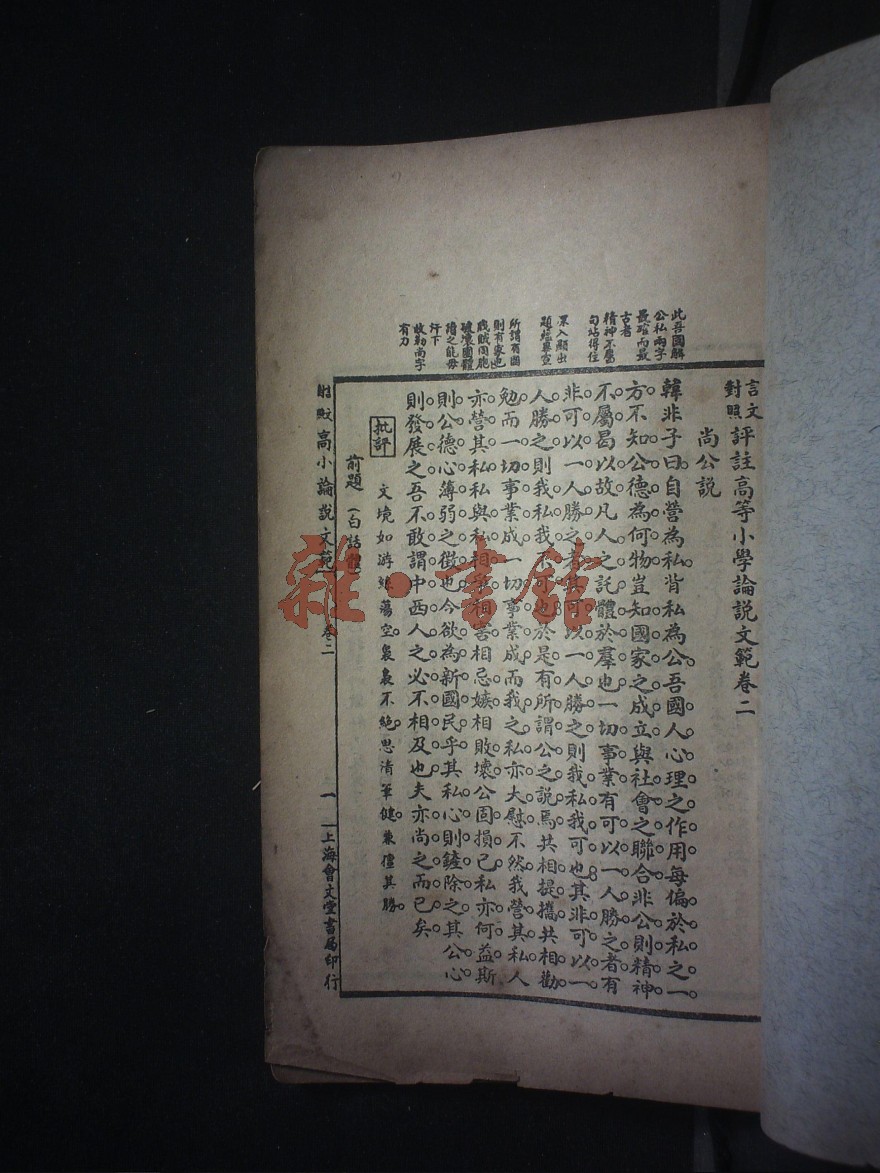 言文
對照
評註高等小學論說文範卷二
尚公說
韓非子曰。自營為私。背私為公。吾國人心理之作用。每偏於私之一
方。不知公德為何物。豈知國家之成立。與社會之聯合。非公則精神
不屬。曷以故。凡人之託體於羣也。一切事業。有可以一人勝之者。有
非可以一人勝之者。其可以一人勝之。則我私我可也。其非可以一
人勝之。則我私我不可也。於是有所謂公之說焉。共相提攜。共相勸
勉。而一切事業成。一切事業成。而我之私亦大慰。不然。我營其私。人
亦營其私。私與私相爭。相害。相忌嫉。相敗壞。公固損已。私亦何益。斯
則公德心薄弱之徵也。今欲為新國民乎。其私心則鏟除之。其公心
則發展之。吾不敢謂中西人之必不相及也。夫亦尚之而已矣
批評
文境如游絲蕩空。裊裊不絕。思清筆健。兼僅其勝。
前題(白話體)
此吾國解
公私兩字
最確而最
古者
精神不屬
句站得住
眾入顯出
題蘊畢宣
所謂有國
則有家也
戕賊同胞
破壞團體
讀之能毋
汗下
收勒尚字
有力
高小論說文範
卷二
一
上海會文堂書局印行
雜·書館